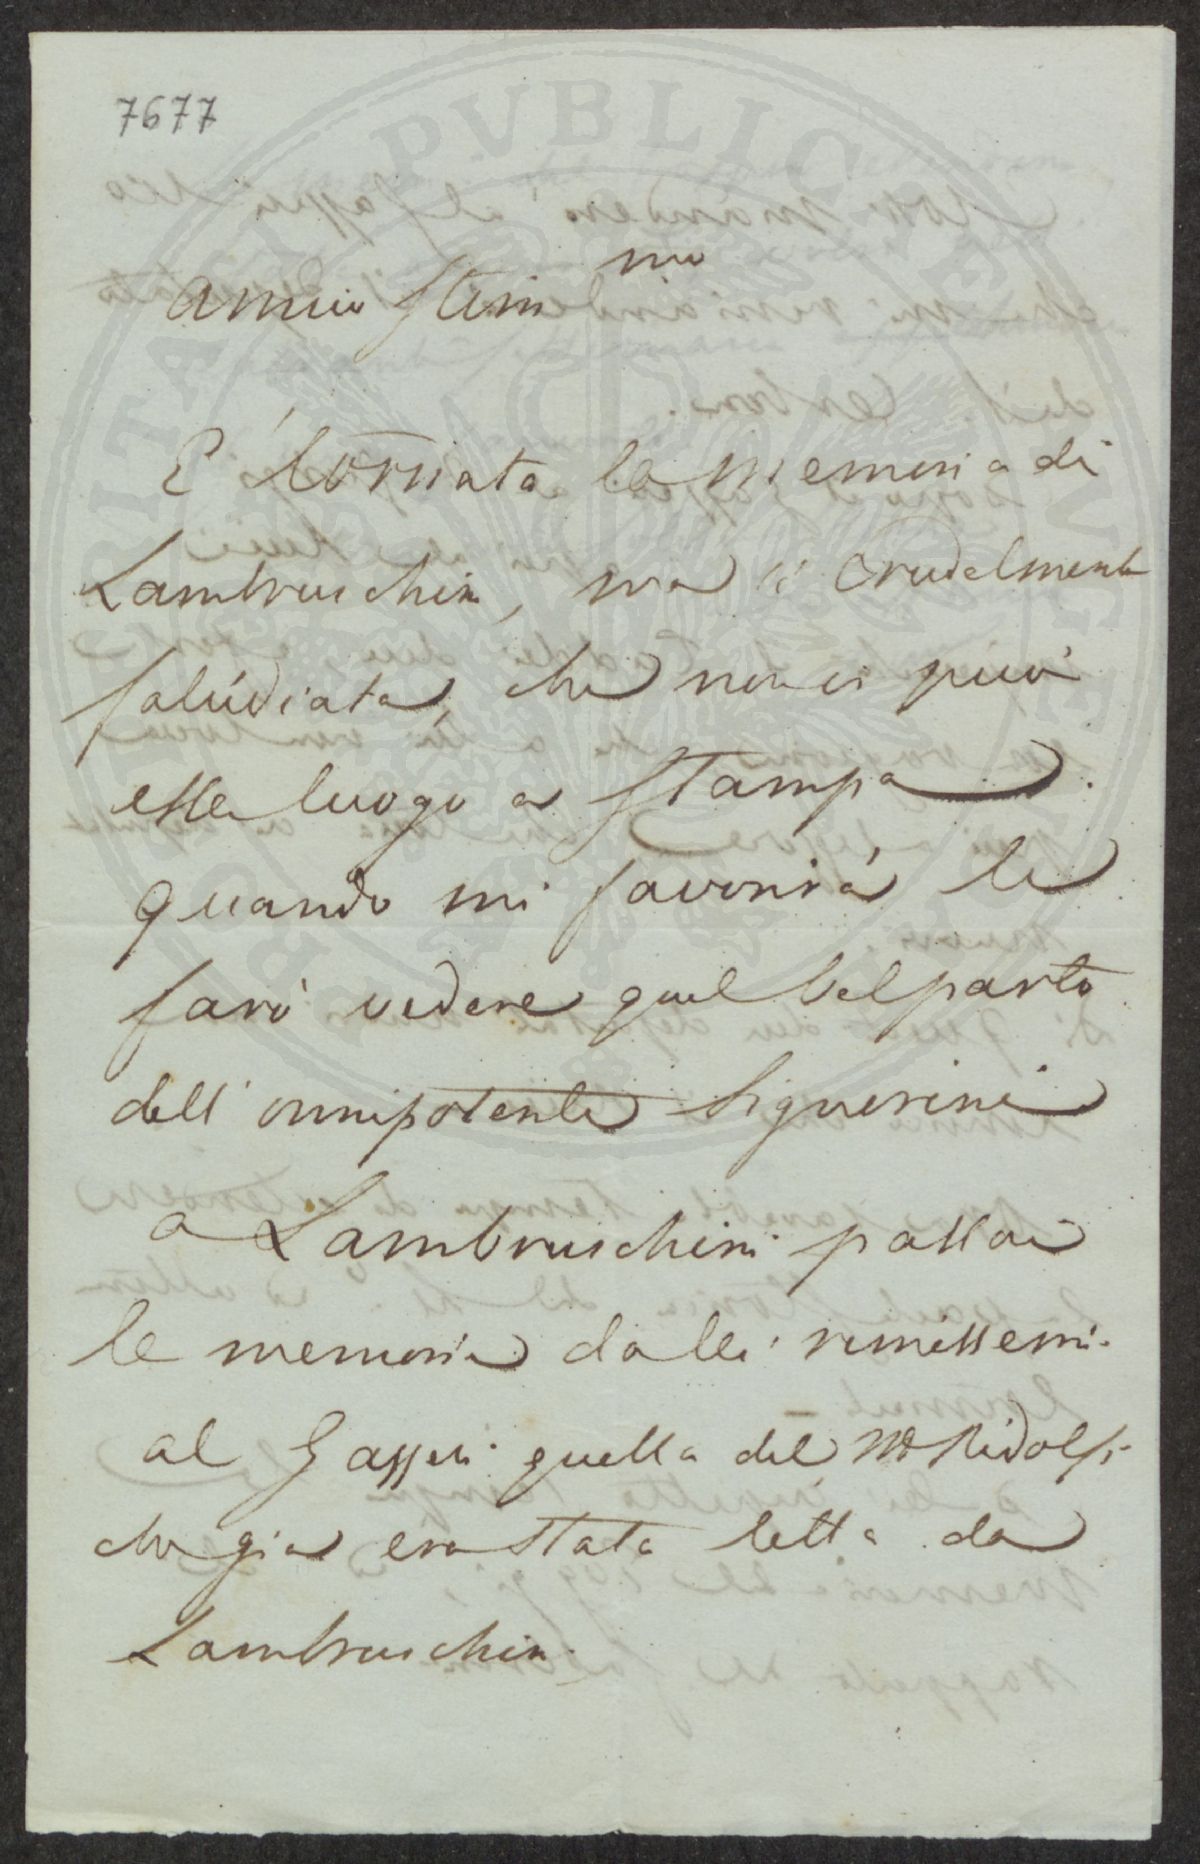 7677
Amico Stim mo
E' tornata la memoria di
Lambruschini, ma è crudelmente
falcidiata, che non ci può
esser luogo a stampa.
quando mi favorirà le
farò vedere quel bel parto
dell' onnipotente
a Lambruschini passai
le memorie da lei rimessemi.
al Gazzeri quella del M Ridolfi
che già era stata letta da
Lambruschini.